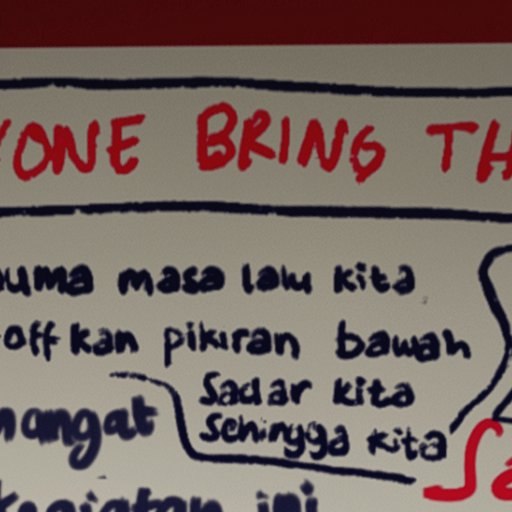 YONE BRING TH
uma masa lalu kita
off kan pikiran bawah
sadar kita
sehingga kita
mangat
kegiatan ini
Sa